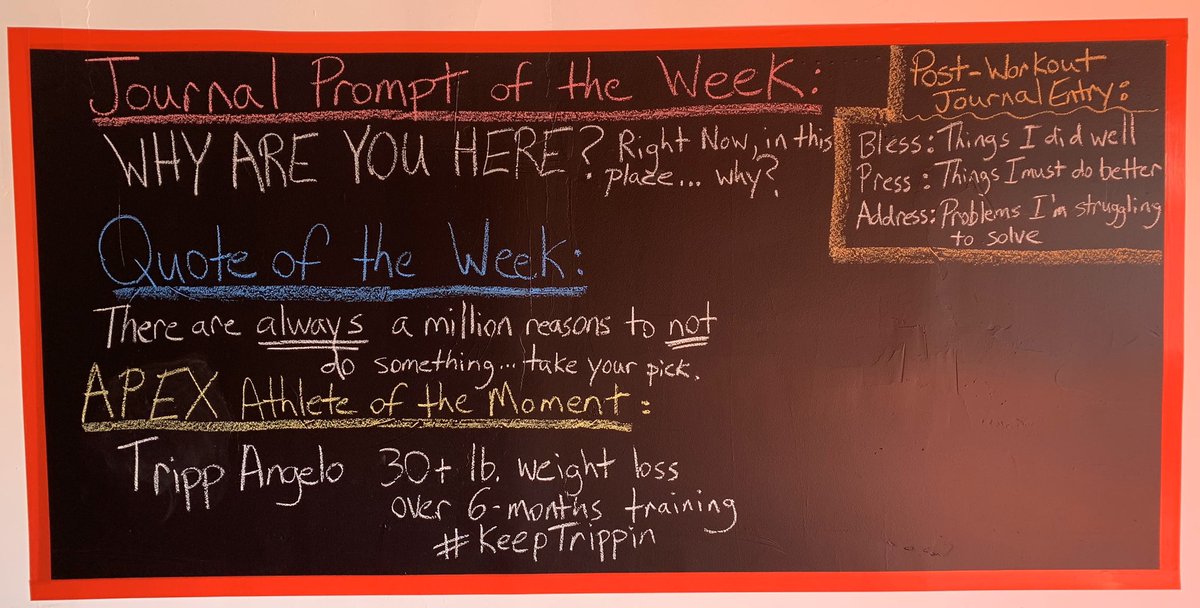 Journal Prompt of the Week:
WHY ARE YOU HERE? Right Now, in this
place... why?
Quote of the Week:
There are always a million reasons to not
do something... take your pick.
APEX Athlete of the Moment:
Tripp Angelo 30+ lb. weight loss
over 6-months training
#KeepTrippin
Post-Workout
Journal Entry:
Bless: Things I did well
Press: Things I must do better
Address: Problems I'm struggling
to solve